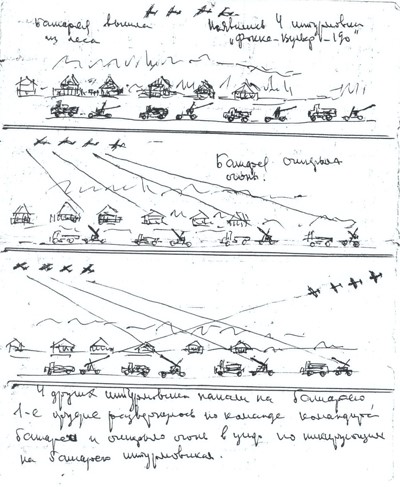 Батарея вышла
из леса
Появились 4 штурмовика
„Фокке-Вульф"-190"
Батарея открывает
огонь.
4 других штурмовика напали на батарею
1-е орудие развернулось по команде командира
батареи и открыло огонь в упор по пикирующим
на батарею штурмовикам.